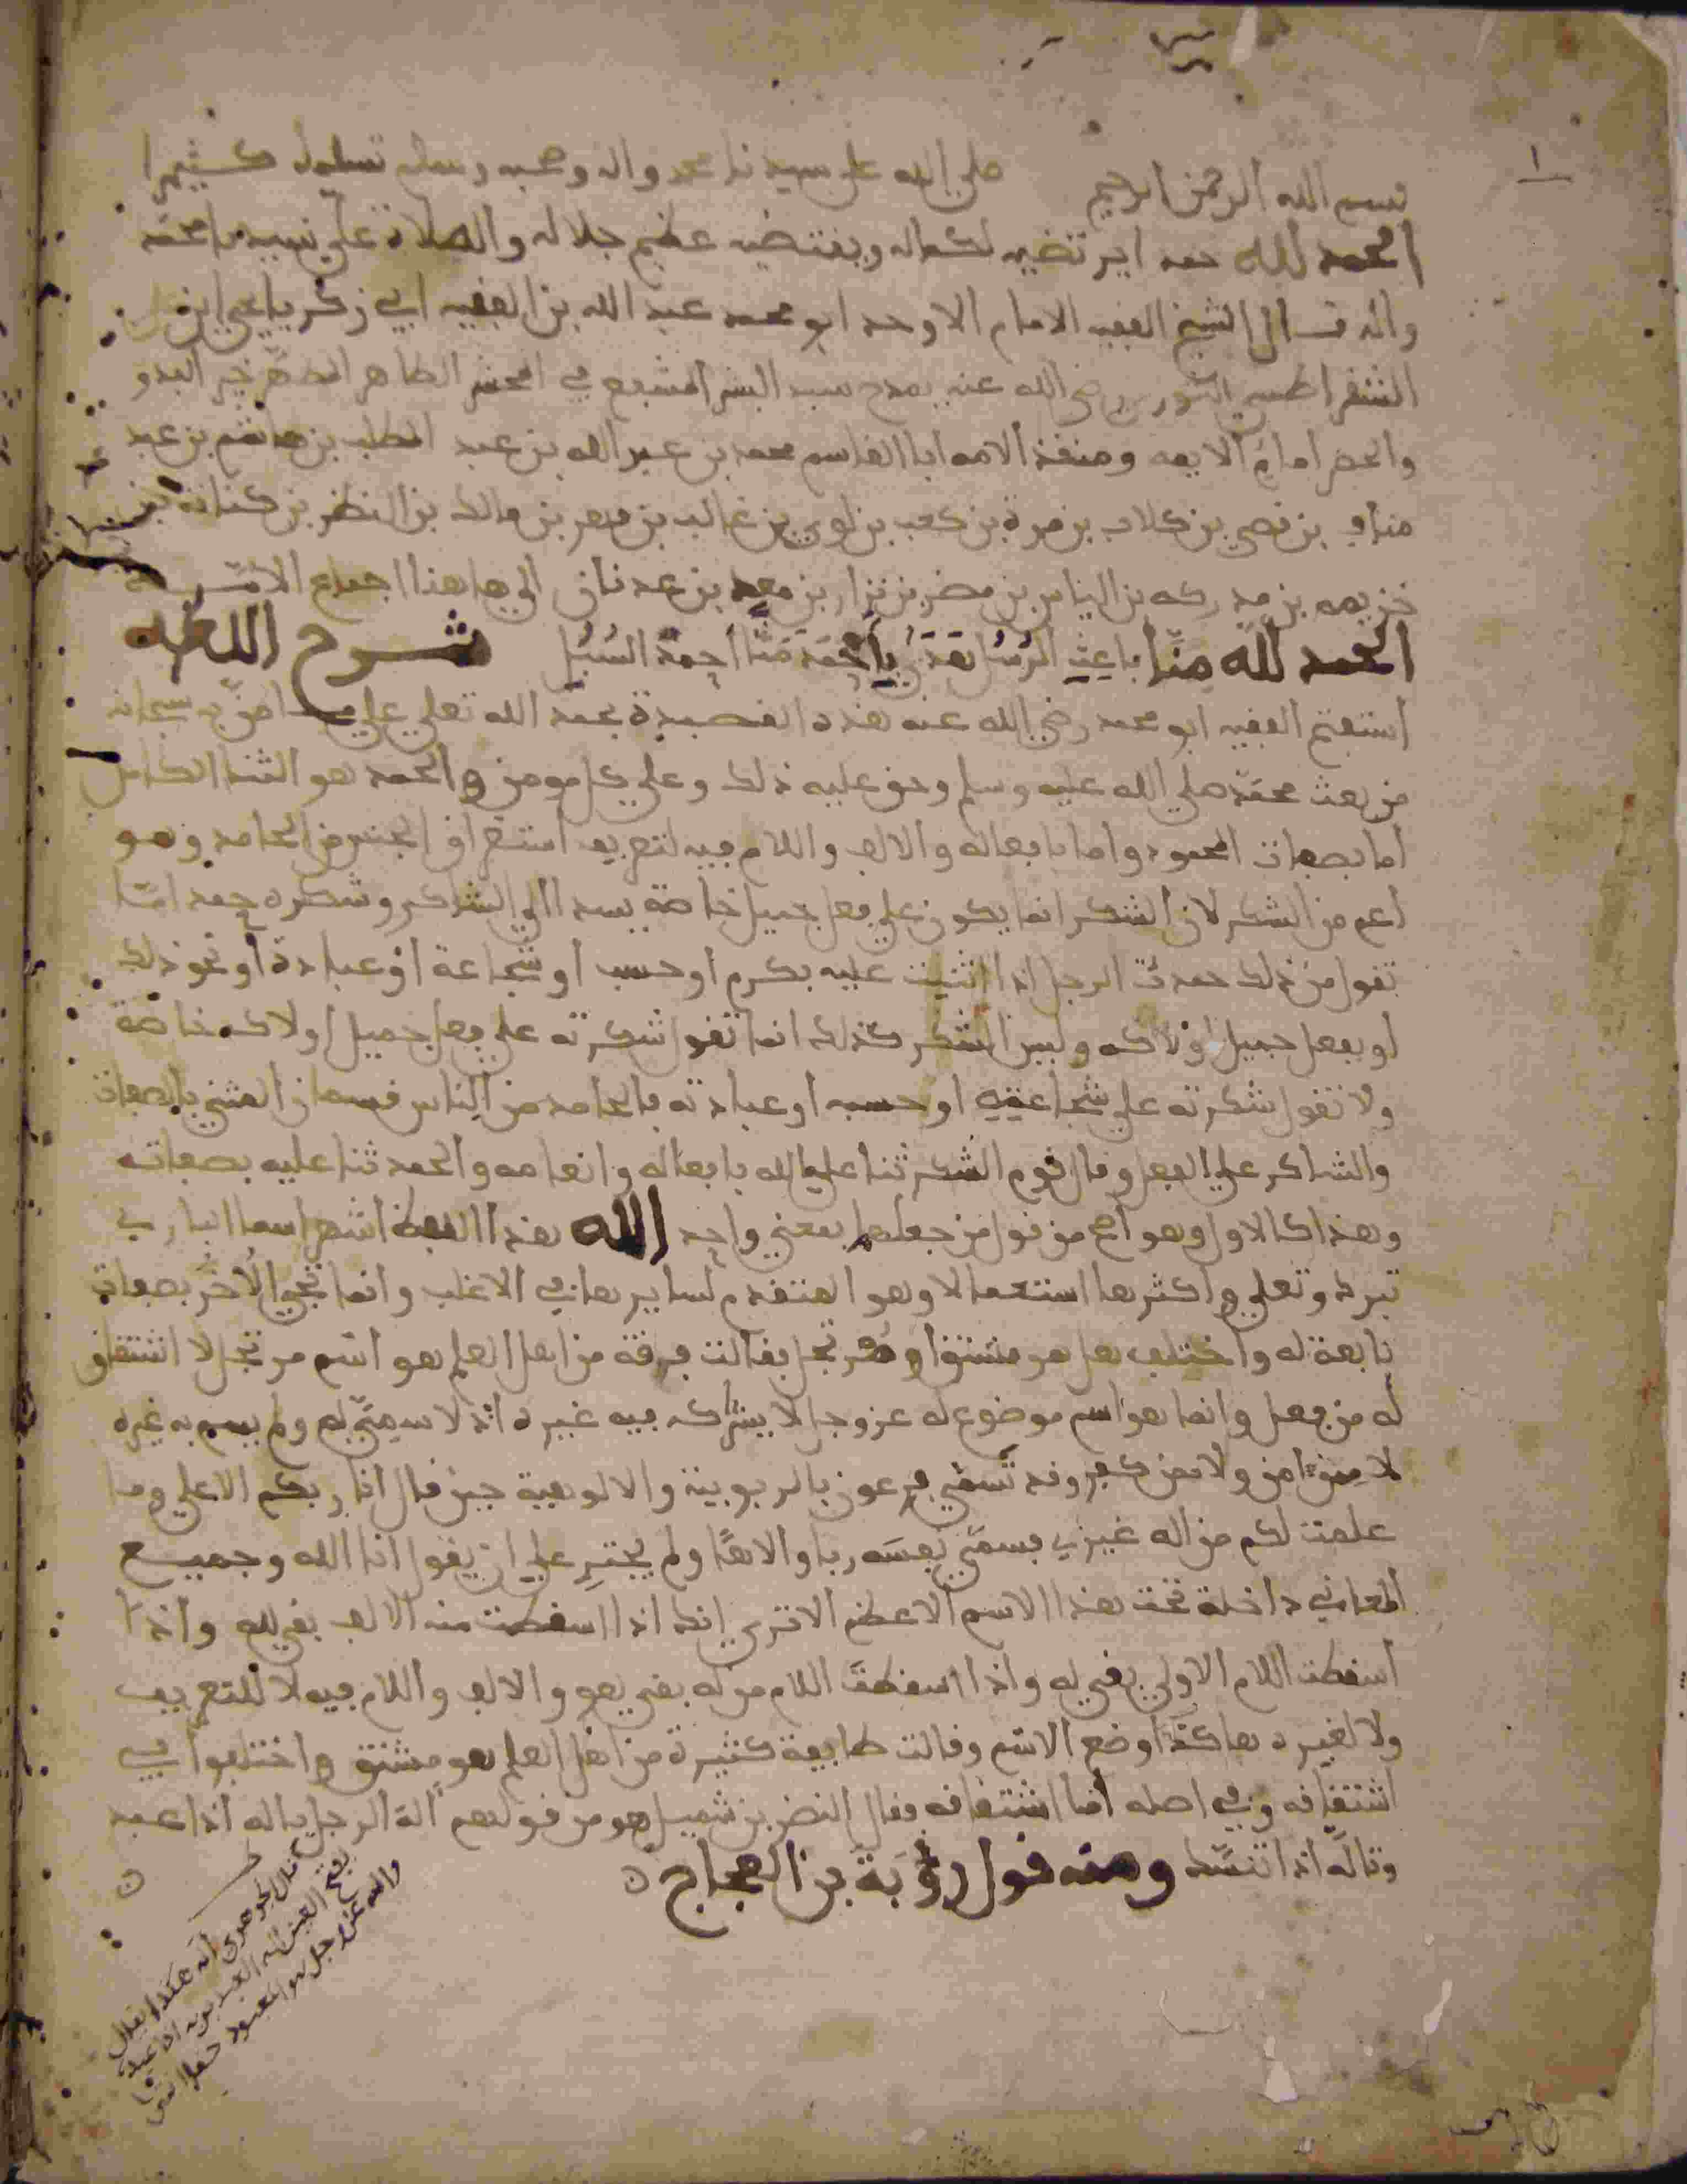 ١
بسم الله الرحمن الرحيم صلى الله على سيدنا محمد واله وصحبه وسلم تسليما كثيرا
الحمد لله حمدا يرتضيه لكماله ويقتضيه عظيم جلاله والصلاة على نبيه محمد
واله قال الشيخ الفقيه الامام الاوحد ابو محمد عبد الله بن الفقيه ابي زكرياء يحيى بن
الشقراطسي التوزري رضي الله عنه يمدح سيد البشر المشفع في المحشر الطاهر المطهر خير البدو
والحضر امام الايمه ومنقذ الامه ابا القاسم محمد بن عبد الله بن عبد المطلب بن هاشم بن عبد
مناف بن قصي بن كلاب بن مرة بن كعب بن لوي بن غالب بن فهر بن مالك بن النضر بن كنانة بن
خزيمه بن مدركه بن الياس بن مضر بن نزار بن معد بن عدنان الى هاهنا اجماع الامة
الحمد لله منا باعث الرسل هدى باحمد منا احمد السبل شرح اللفظه
استفتح الفقيه ابو محمد رضي الله عنه هذه القصيدة بحمد الله تعلى على ما من به سبحانه
من بعث محمد صلى الله عليه وسلم وحق عليه ذلك وعلى كل مومن والحمد هو الثنا الكامل
اما بصفات المحمود واما بافعاله والالف واللام فيه لتعريف استغراق الجنس من المحامد وهو
اعم من الشكر لان الشكر انما يكون على فعل جميل خاصة يسدا الى الشاكر وشكره حمد اما
تقول من ذلك حمدت الرجل اذا اثنيت عليه بكرم او حسب او شجاعة او عبادة او نحو ذلك
او بفعل جميل اولاكه وليس الشكر كذلك انما تقول شكرته على فعل جميل اولاكه خاصة
ولا تقول شكرته على شجاعته او حسبه او عبادته فالحامد من الناس قسمان المثني بالصفات
والشاكر على الفعل وقال قوم الشكر ثنا على الله بافعاله وانعامه والحمد ثنا عليه بصفاته
وهذا كالاول وهو اصح من قول من جعلهما بمعنى واحد الله هذا اللفظ اشهر اسما الباري
تبرك وتعلى واكثرها استعمالا وهو المتقدم لسايرها في الاغلب وانما تجي الاخر بصفات
تابعة له واختلف هل هو مشتق او مرتجل فقالت فرقة من اهل العلم هو اسم مرتجل لا اشتقاق
له من فعل وانما هو اسم موضوع له عز وجل لا يشركه فيه غيره اذ لا سمي له ولم يسم به غيره
لا ممن امن ولا ممن كفر وقد تسمى فرعون بالربوبية والالوهية حين قال انا ربكم الاعلى وما
علمت لكم من اله غيري فسمى نفسه ربا والاها ولم يجتر على ان يقول انا الله وجميع
المعاني داخلة تحت هذا الاسم الاعظم الا ترى انك اذا اسقطت منه الالف بقي لله واذا
اسقطت اللام الاولى بقي له واذا اسقطت اللام من له بقي هو والالف واللام فيه لا للتعريف
ولا لغيره هاكذا وضع الاسم وقالت طايفة كثيرة من اهل العلم هو مشتق واختلفوا في
اشتقاقه وفي اصله اما اشتقاقه فقال النضر بن شميل هو من قولهم اله الرجل ياله اذا عبد
وتاله اذا تنسك ومنه قول رؤبة بن العجاج
قال الجوهري اله هكذا يقال
بفتح العين اله العبد ربه اذا عبده
والله عز وجل هو المعبود حقا